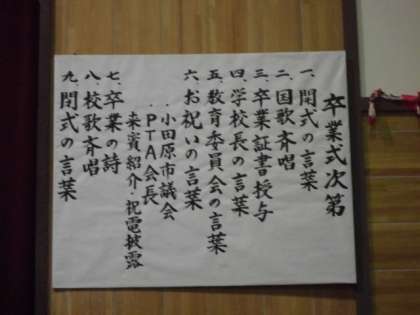 卒業式次第
一、開式の言葉
二、国歌斉唱
三、卒業証書授与
四、学校長の言葉
五、教育委員会の言葉
六、お祝いの言葉
・小田原市議会
・PTA会長
来賓紹介・祝電披露
七、卒業の詩
八、校歌斉唱
九、閉式の言葉